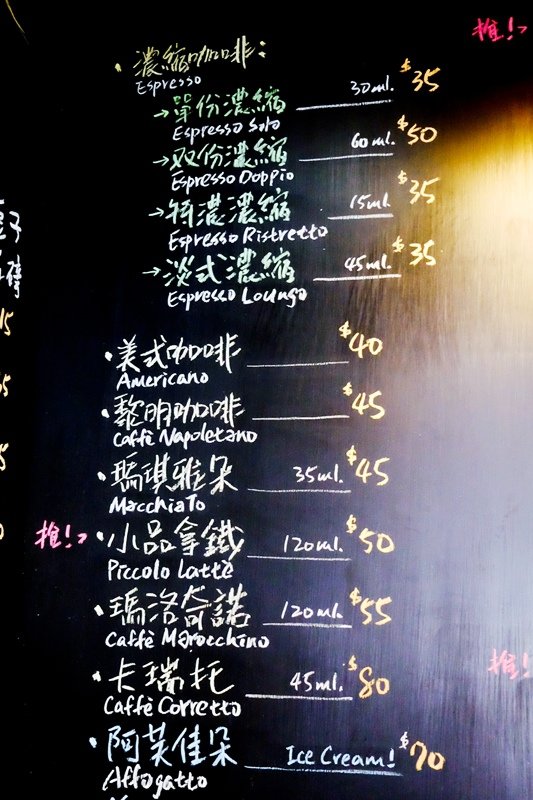 推!
· 濃縮咖啡:
Espresso
→單份濃縮 30ml. $35
Espresso Solo
→双份濃縮 60ml. $50
Espresso Doppio
→特濃濃縮 15ml. $35
Espresso Ristretto
→淡式濃縮 45ml. $35
Espresso Loungo
· 美式咖啡 $40
Americano
· 黎明咖啡 $45
Caffè Napoletano
· 瑪琪雅朵 35ml. $45
MacchiaTo
推! · 小品拿鐵 120ml. $50
Piccolo Latte
· 瑪洛奇諾 120ml. $55
Caffè Marocchino
推!
· 卡瑞托 45ml. $80
Caffè Corretto
· 阿芙佳朵 Ice Cream! $70
Affogatto